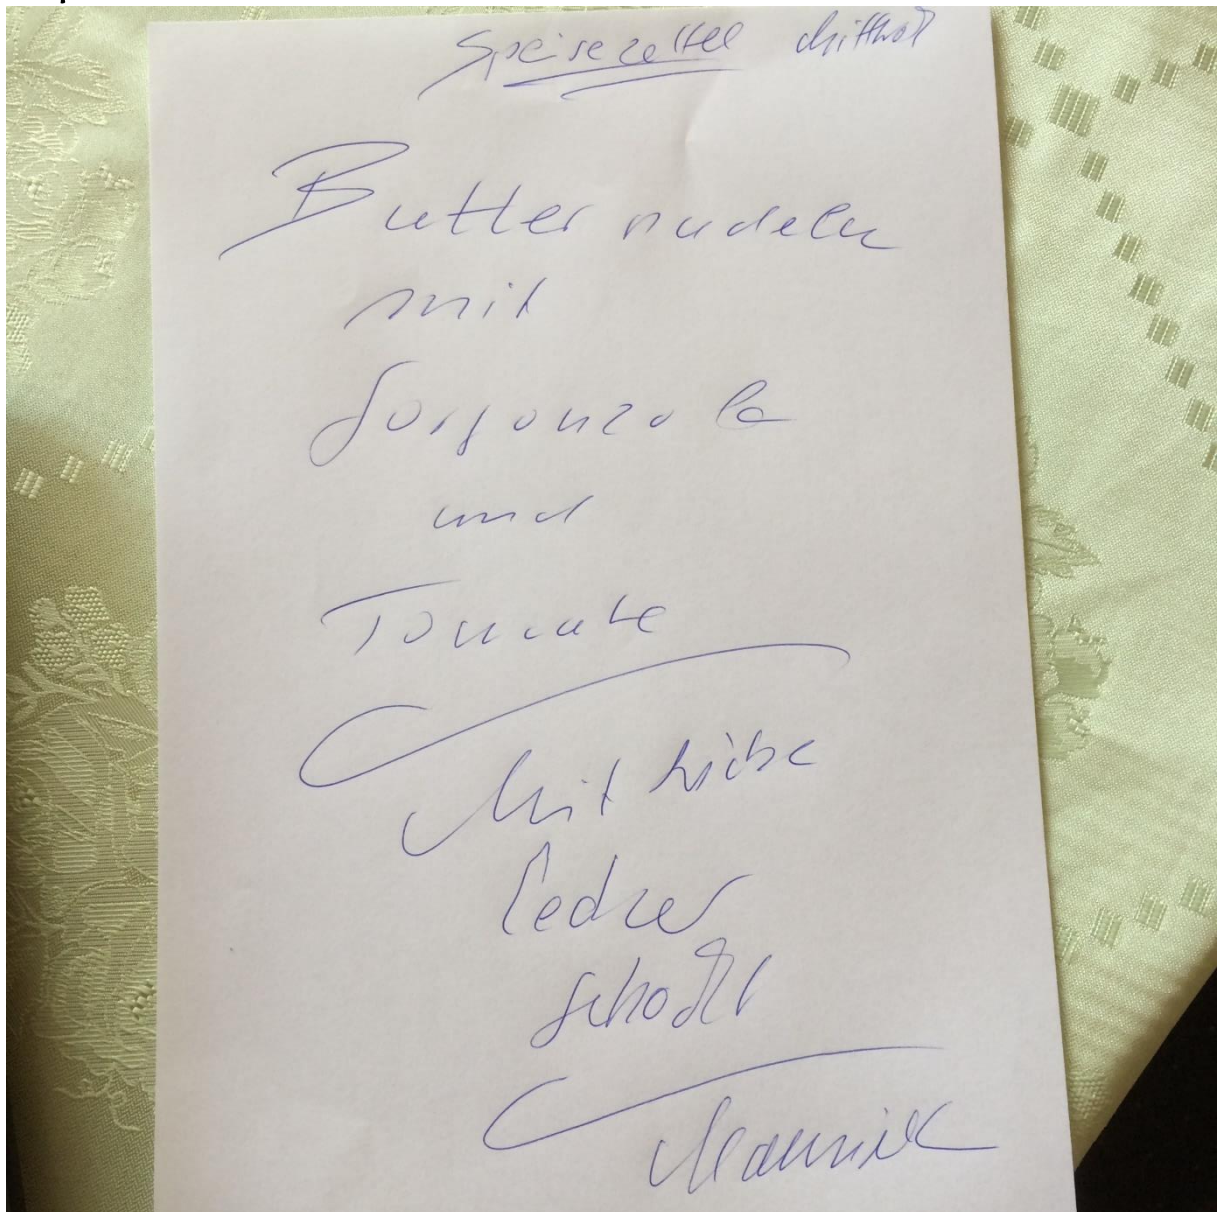 Speisezettel Mittwoch
Butternudeln
mit
Gorgonzola
und
Tomate
Mit Liebe
gekocht